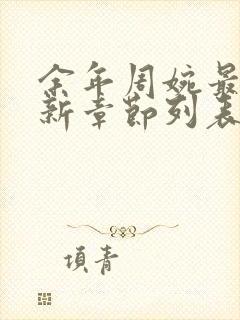 余年周婉最
新章节列表
项青